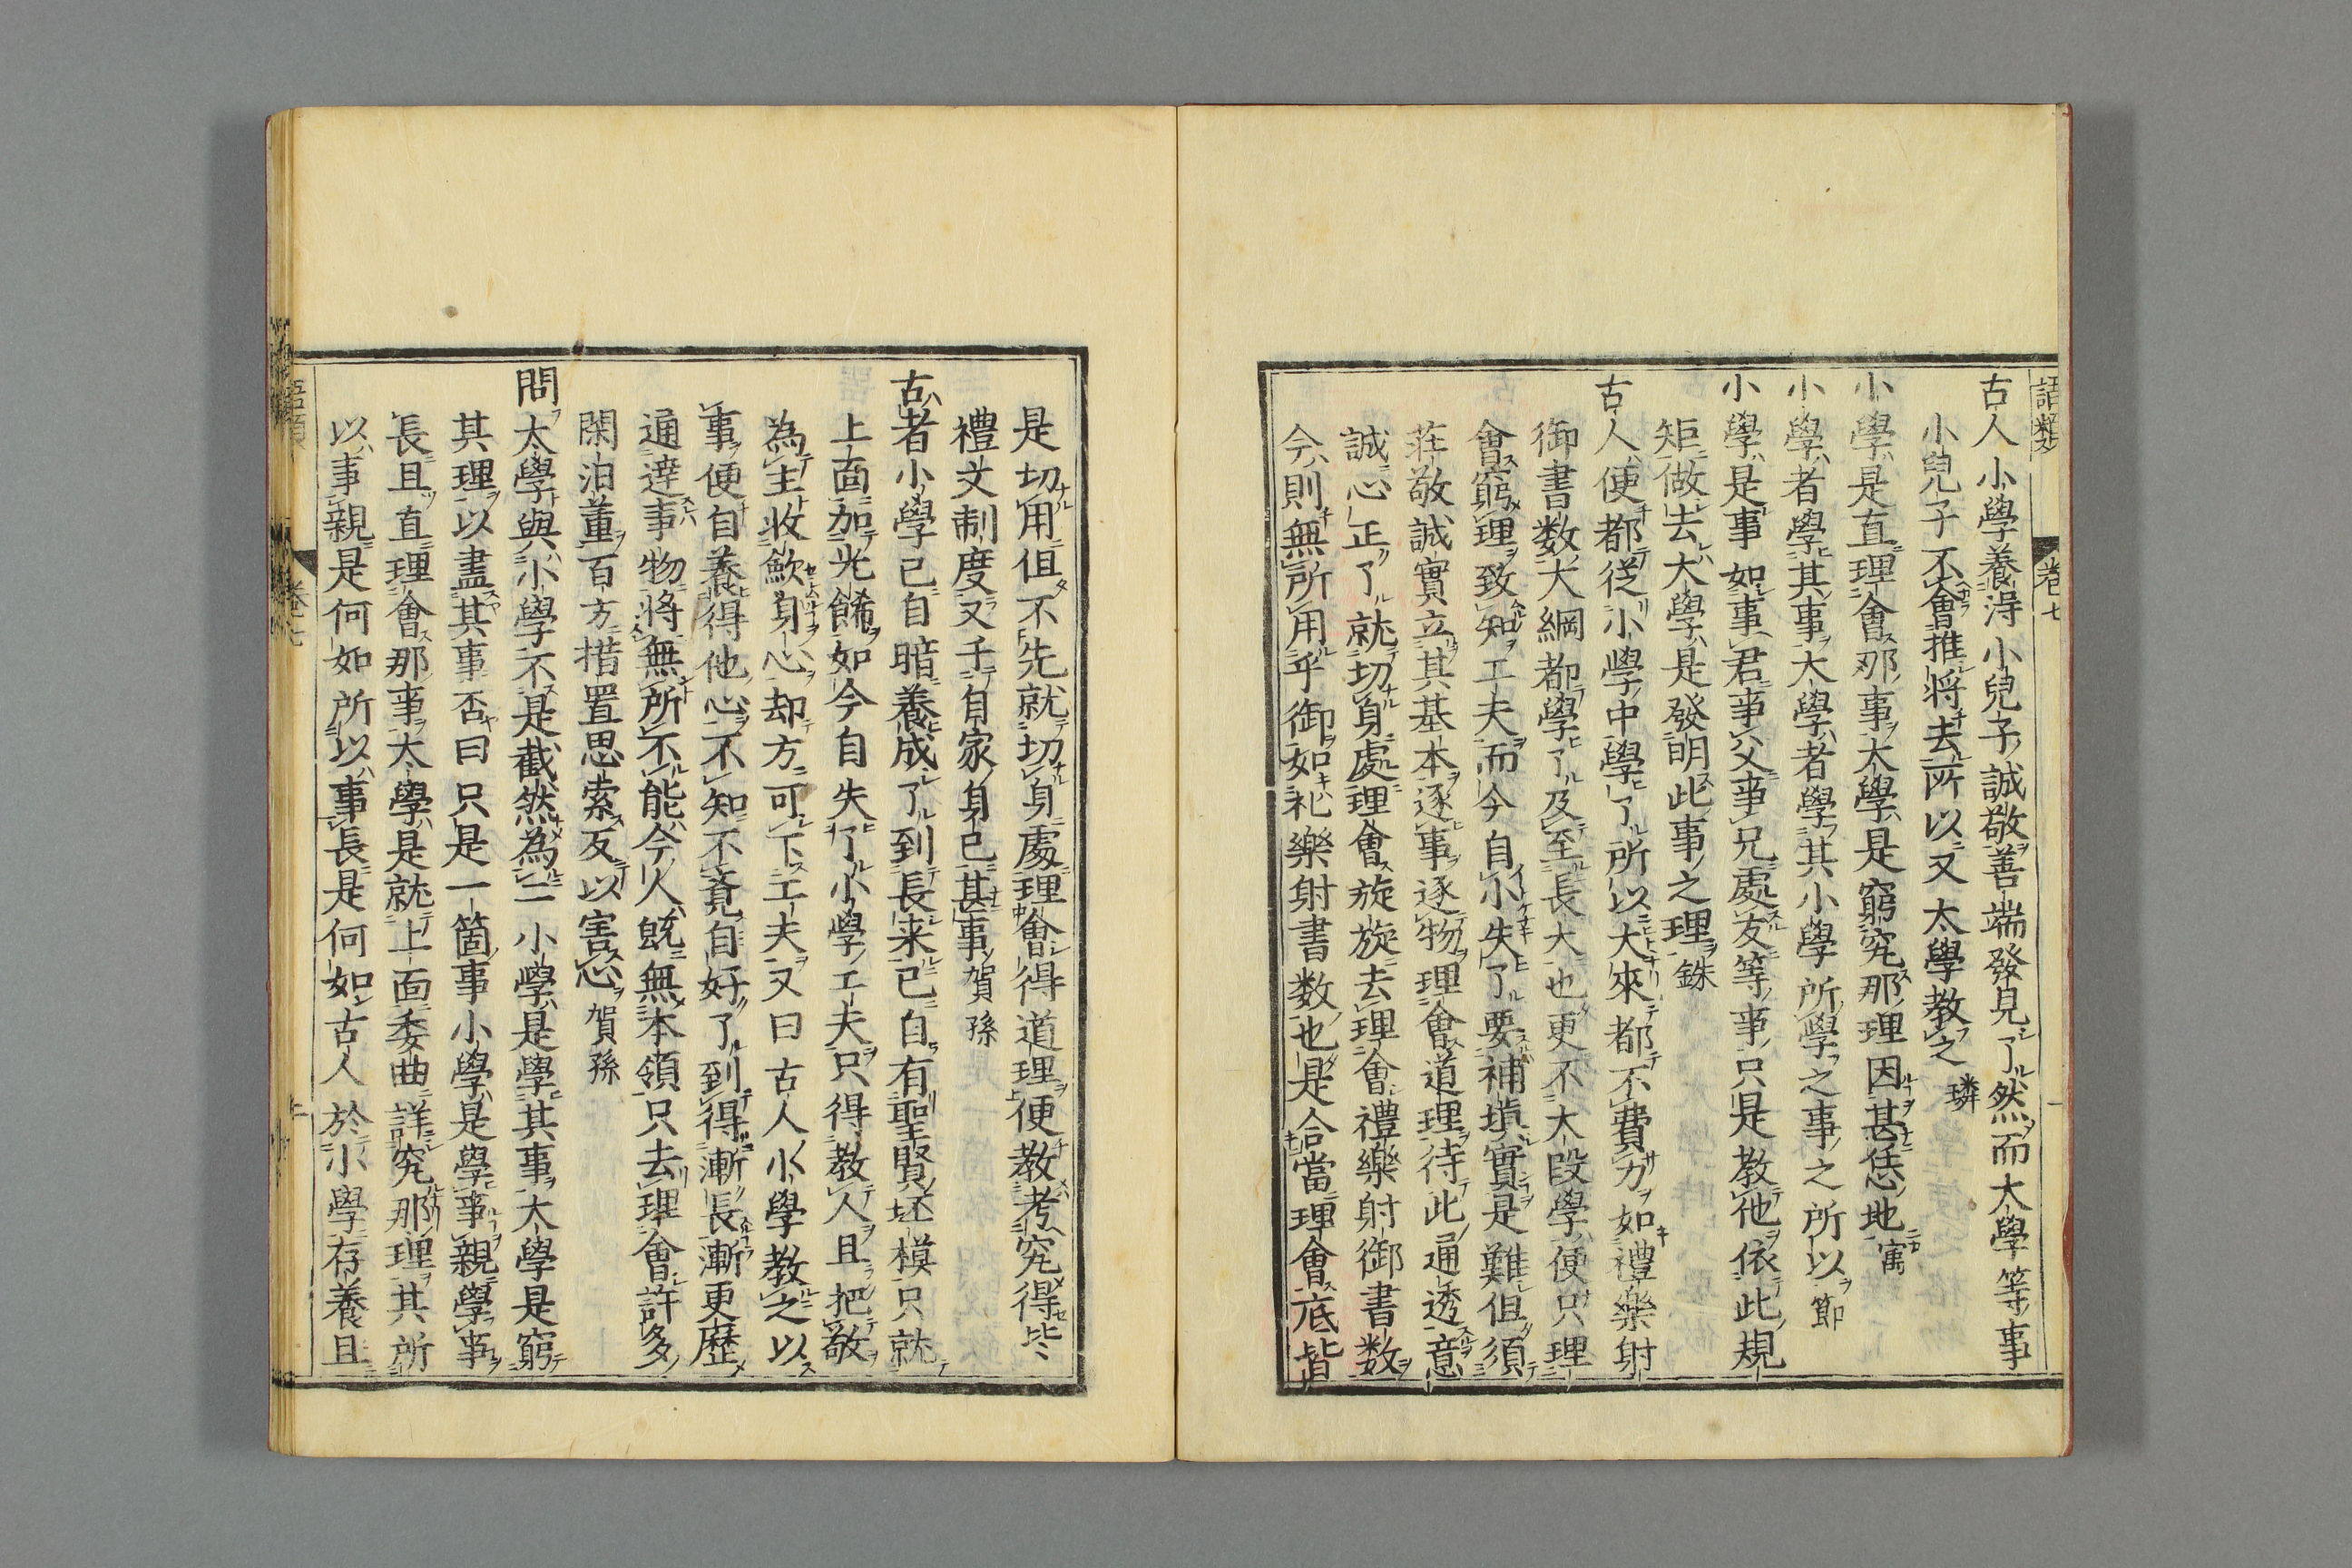 語類 卷七 一
古人小學養淂小兒子誠敬善端發見了然而大學等事
小兒子不會推將去所以又太學教之 璘
小學是直理會那事太學是窮究那理因甚恁地 㝢
小學者學其事大學者學其小學所學之事之所以 節
小學是事如事君事父事兄處友等事只是教他依此規
矩做去大學是發明此事之理 銖
古人便都從小學中學了所以大來都不費力如禮樂射
御書数大綱都學了及至長大也更不大段學便只理
會窮理致知工夫而今自小失了要補填實是難但須
莊敬誠實立其基本逐事逐物理會道理待此通透意
誠心正了就切身處理會旋旋去理會禮樂射御書数
今則無所用乎御如礼樂射書数也是合當理會底皆
是切用但不先就切身處理會得道理便教考究得些
禮文制度又干自家身己甚事 賀孫
古者小學已自暗養成了到長来已自有聖賢坯模只就
上面加光餙如今自失了小學工夫只得教人且把敬
為主收斂身心却方可下工夫又曰古人小學教之以
事便自養得他心不知不覔自好了到得漸長漸更歷
通達事物將無所不能今人旣無本領只去理會許多
閑汩董百方措置思索反以害心 賀孫
問太學與小學不是截然為二小學是學其事大學是窮
其理以盡其事否曰只是一箇事小學是學事親學事
長且直理會那事太學是就上面委曲詳究那理其所
以事親是何如所以事長是何如古人於小學存養且
語類 卷七